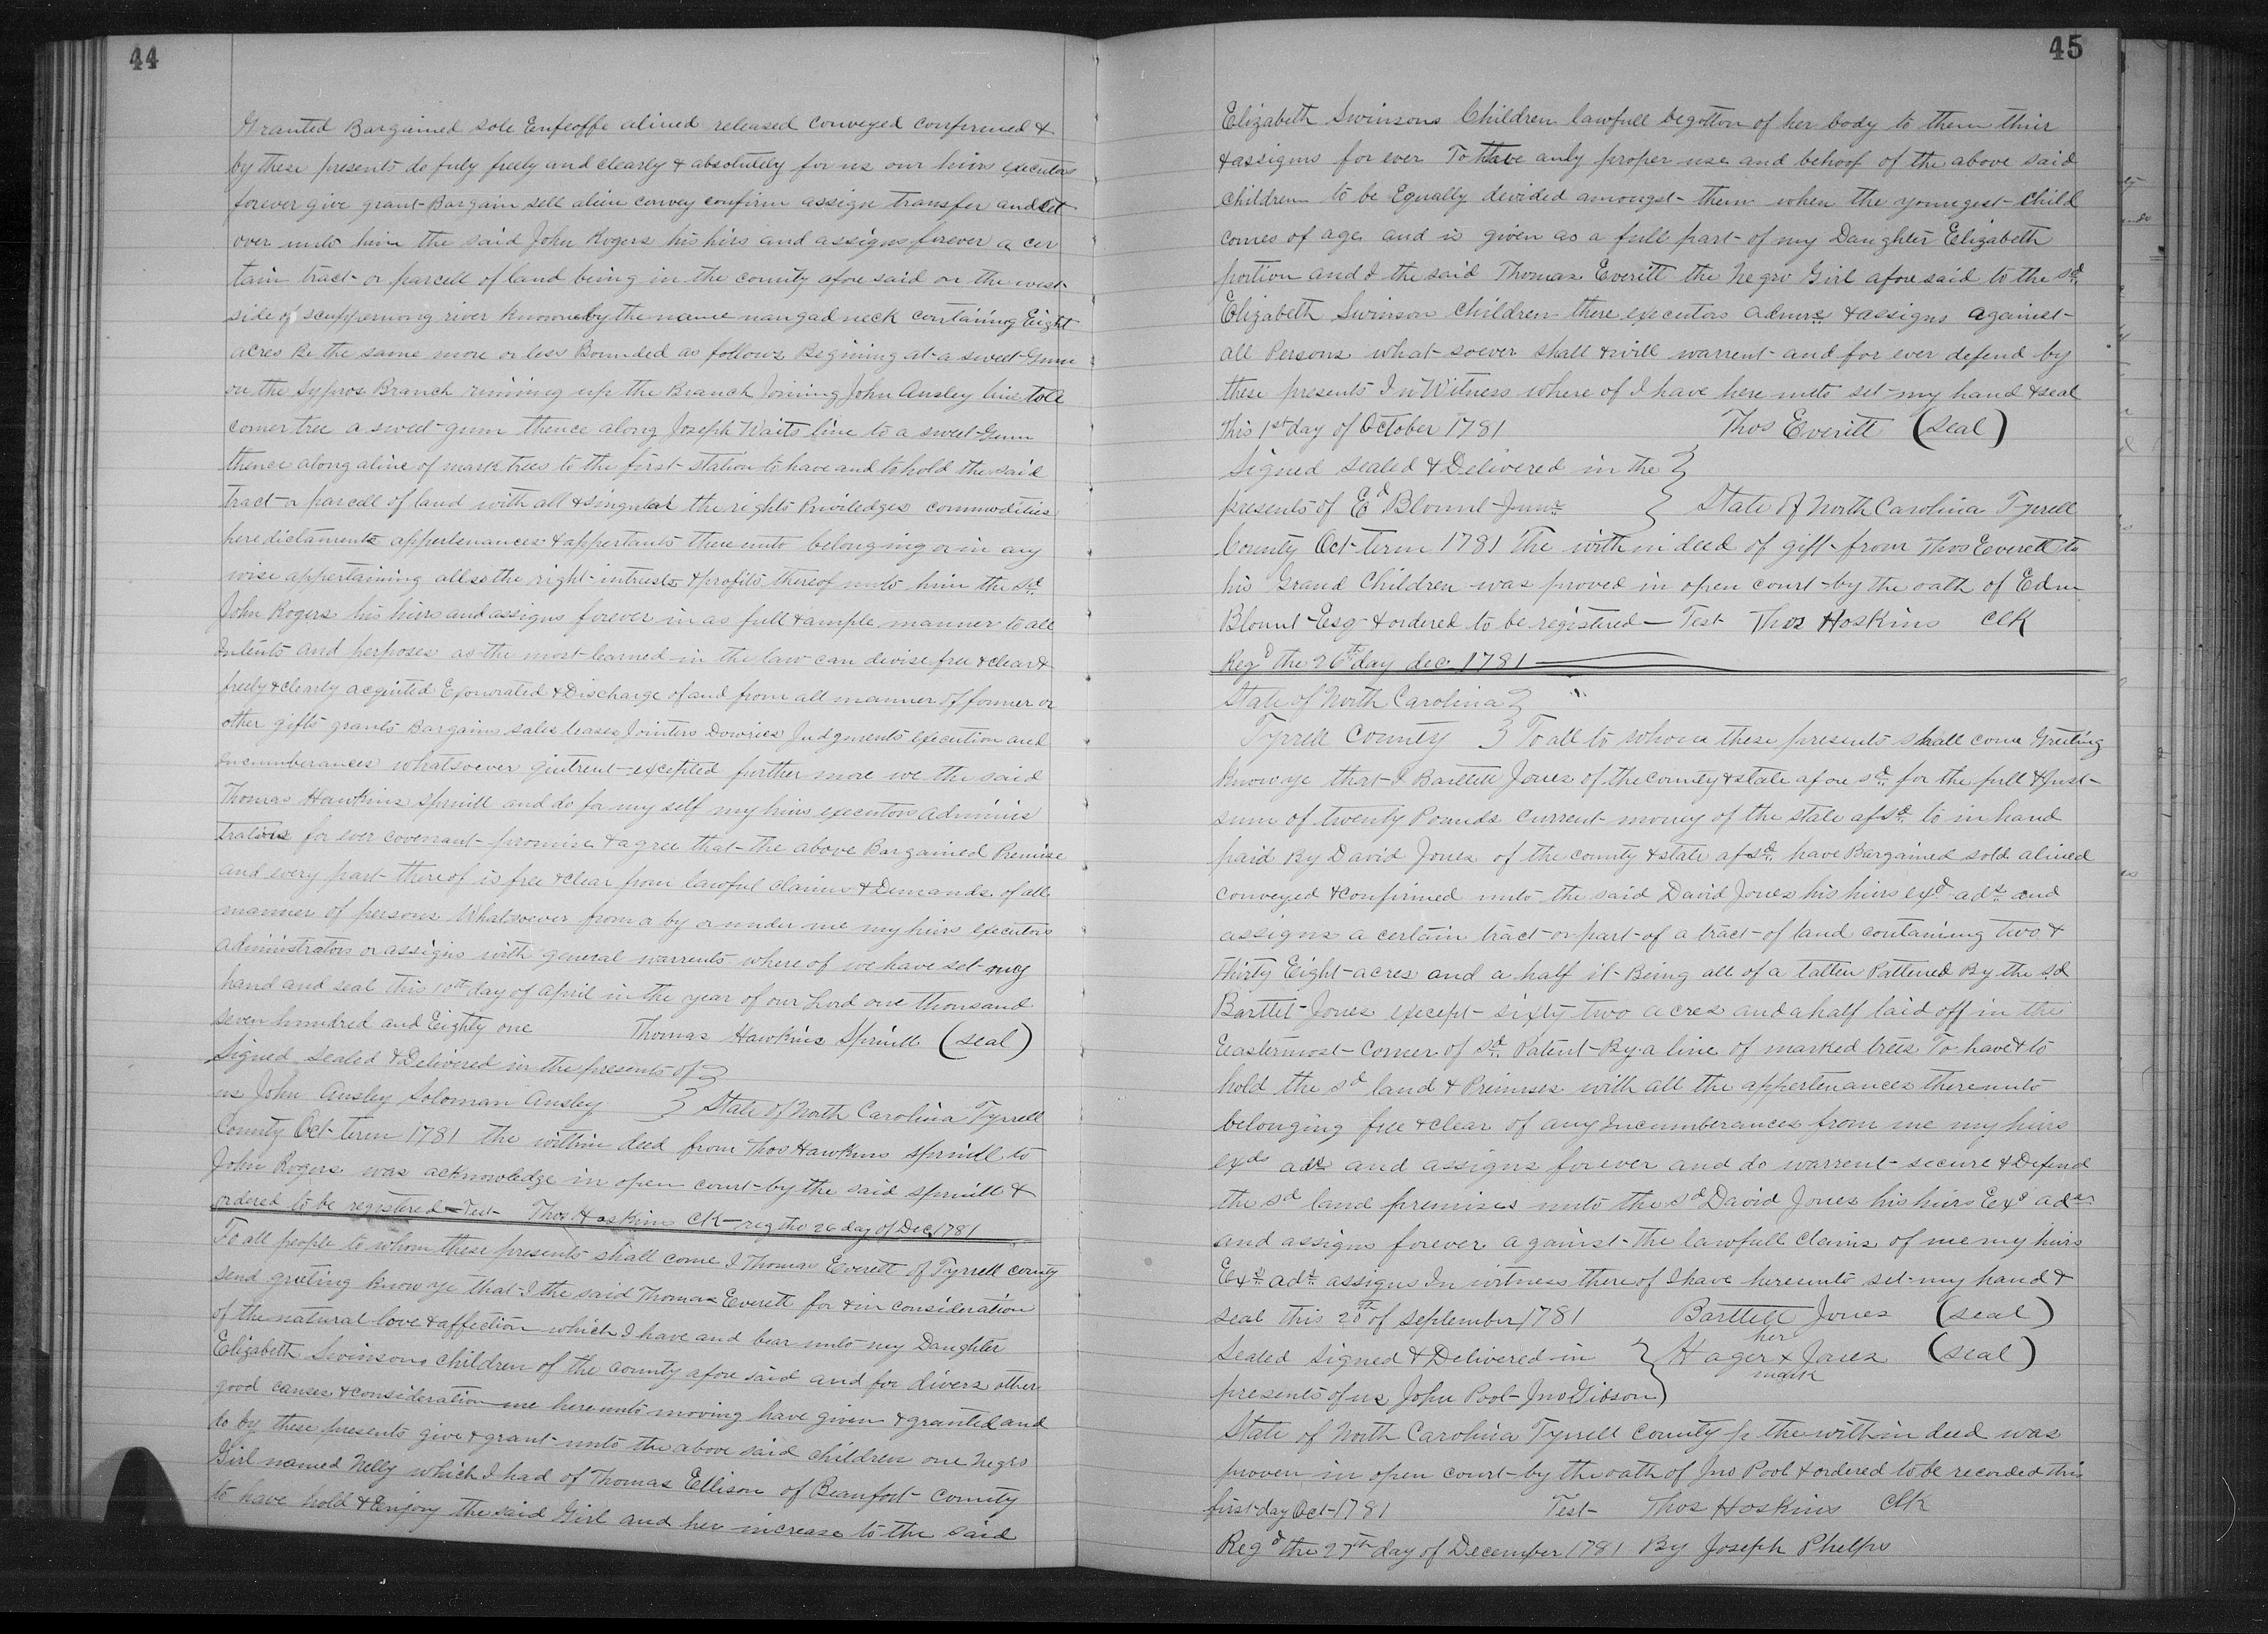 44
Granted Bargained sole Enfeoffe alined released conveyed confirmed &
by these presents do fuly freely and clearly & absolutely for us our hiirs executors
forever give grant Bargain sell alien convey confirm assign transfer and set
over unto him the said John Rogers his hirs and assigns forever a cer
tain tract or parcell of land being in the county afore said on the west
side of scuppernong river knowne by the name nangad neck containing Eight
acres Be the same more or less Bounded as follows Begining at a sweet Gum
on the Sypros Branch runing up the Branch Joining John Ansley line to a
corner tree a sweet gum thence along Joseph Waits line to a sweet Gum
thence along a line of mark trees to the first station to have and to hold the said
tract or parcell of land with all & singular the rights Priviledges commodities
heredictaments appertenances & appertants thereunto belonging or in any
wise appertaining allso the right intrusts & profits thereof unto him the sd
John Rogers his hiirs and assigns forever in as full & ample manner to all
Intents and perposes as the most learned in the law can devise free & clear &
freely & clearly acquited Exonorated & Discharge of and from all manner of former or
other gifts grants Bargains sales leases Jointers Dowries Judgments execution and
Incumberances whatsoever quitrent excepted further more we the said
Thomas Hawkins Spruill and do for my self my hiirs executors adminis
trators for ever covenant promise & agree that the above Bargained Premise
and every part thereof is free & clear from lawful claims & Demands of all
manner of persons Whatsoever from or by or under me my hiirs executors
administrators or assigns with general warrents where of we have set my
hand and seal this 10th day of April in the year of our Lord one thousand
seven hundred and Eighty one Thomas Hawkins Spruill (seal)
Signed sealed & Delivered in the presents of }
us John Ansley Soloman Ansley } State of North Carolina Tyrrell
County Oct term 1781 the within deed from Thos Hawkins Spruill to
John Rogers was acknowledge in open court by the said Spruill &
ordered to be registered — Test Thos Hoskins Clk — reg the 26 day of Dec 1781
To all people to whom these presents shall come I Thomas Everett of Tyrrell county
send greeting know ye that I the said Thomas Everett for & in consideration
of the natural love & affection which I have and bear unto my Daughter
Elizabeth Swinsons children of the county afore said and for divers other
good causes & consideration me hereunto moving have given & granted and
do by these presents give & grant unto the above said children one negro
Girl named Nelly which I had of Thomas Ellison of Beaufort county
to have hold & Enjoy the said Girl and her increase to the said
45
Elizabeth Swinsons Children lawfull begotton of her body to them thiir
& assigns for ever To Have anly proper use and behoof of the above said
children to be Equally devided amongst them when the youngest child
comes of age and is given as a full part of my Daughter Elizabeth
portion and I the said Thomas Everitt the Negro Girl afore said to the sd
Elizabeth Swinson children there executors admrs & assigns against
all Persons what soever shall & will warrent and for ever defend by
these presents In Witness where of I have here unto set my hand & seal
This 1st day of October 1781 Thos Everitt (seal)
Signed sealed & Delivered in the }
presents of Ed Blount Junr } State of North Carolina Tyrrell
County Oct term 1781 The within deed of gift from Thos Everett to
his Grand Children was proved in open court by the oath of Edm
Blount Esq & ordered to be registered — Test Thos Hoskins Clk
Regd the 26th day dec 1781
State of North Carolina }
Tyrrell County } To all to whom these presents shall come Greeting
know ye that I Bartlett Jones of the county & state afore sd for the full & Just
sum of twenty Pounds current money of the state afsd to in hand
paid By David Jones of the county & state afsd have Bargained sold alined
conveyed & confirmed unto the said David Jones his hiirs exd ads and
assigns a certain tract or part of a tract of land containing two &
Thirty Eight acres and a half it Being all of a tatten Pattened By the sd
Barttet Jones except sixty two acres and a half laid off in the
Eeastermost Corner of sd Patent By a line of marked trees To have & to
hold the sd land & Primises with all the appertenances thereunto
belonging free & clear of any Incumberances from me my hiirs
exds ads and assigns forever and do warrent secure & Defend
the sd land premises unto the sd David Jones his hiirs Exs ads
and assigns forever against the lawfull claims of me my hiirs
Exs ads assigns In witness there of I have hereunto set my hand &
seal this 20th of september 1781 Barttett Jones (seal)
her
Sealed Signed & Delivered in } Hager x Jones (seal)
mark
presents of us John Pool Jno Gibson )
State of North Carolina Tyrrell County p the within deed was
proven in open court by the oath of Jno Pool & ordered to be recorded this
first day Oct 1781 Test Thos Hoskins Clk
Regd the 27th day of December 1781 By Joseph Phelps